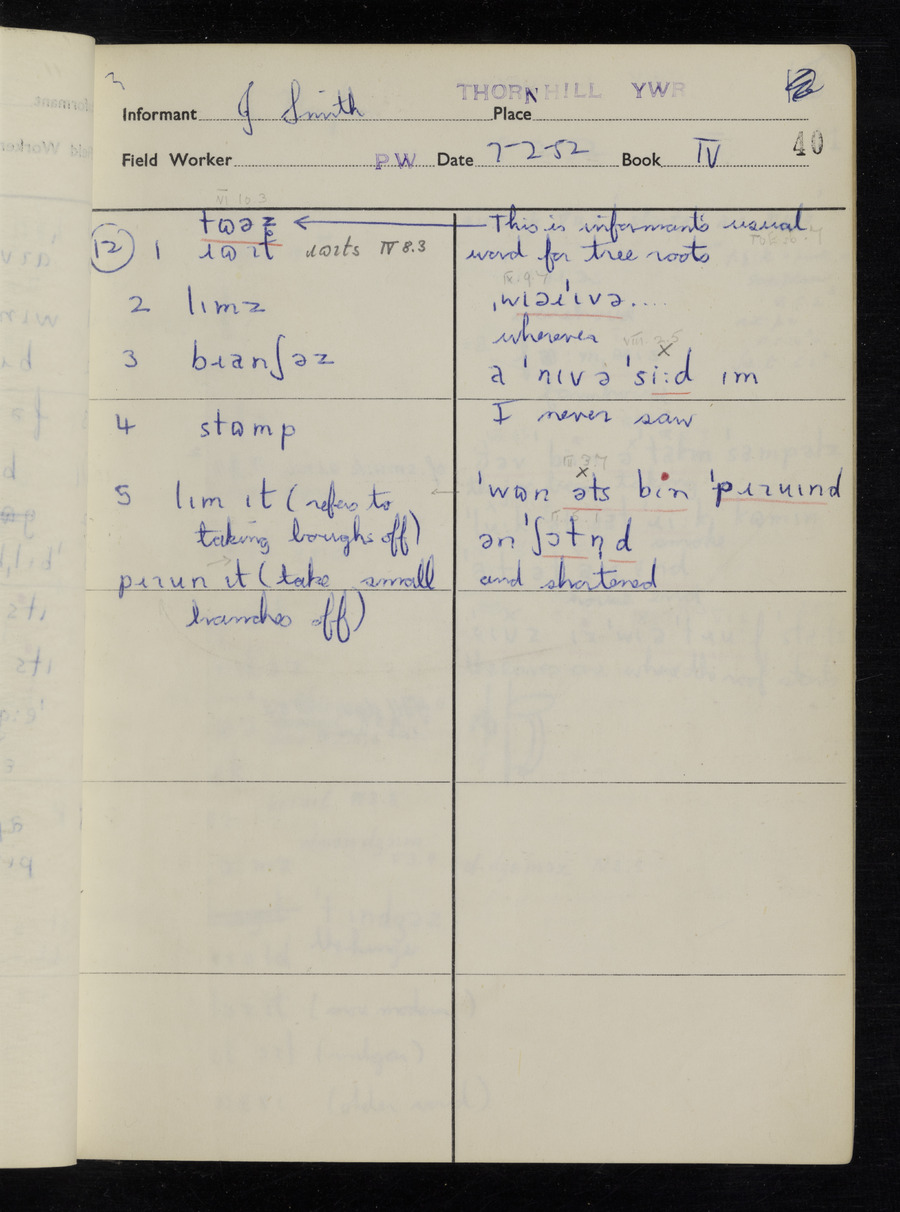 THORNHILL YWR
Informant J Smith Place
Field Worker PW Date 7-2-52 Book IV 40
VI 10.3
tɷəz
This is informant's usual
word for tree roots
12 1 ɹɷːt ɹɷts IV 8.3
IX.9.7
2 lɪmz
ˌwɪəɹˈɪvə....
wherever
VIII.2.5
3 bɹanʃəz
a ˈnɪvə ˈsiːd ɪm
I never saw
4 stɷmp
5 lɪm ɪt (refers to
taking boughs off)
pɹɪun ɪt (take small
branches off)
ˈwɒn əts bin ˈpɹɪuɪnd
ən ˈʃətn̩d
and shortened